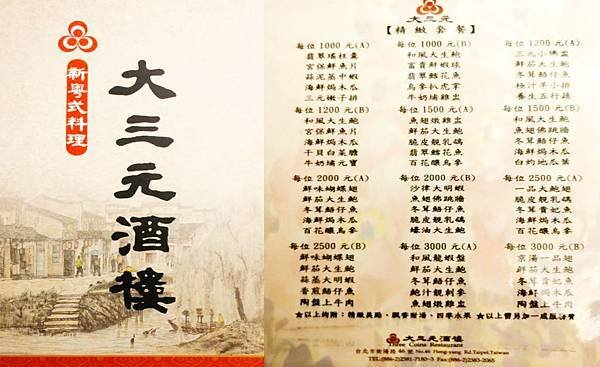 新粵式料理
大三元酒樓
大三元
【精緻套餐】
每位 1000 元(A)
翡翠瑤柱羹
宮保鮮魚片
蒜泥蒸中蝦
海鮮焗木瓜
三元嫩子排
每位 1000 元(B)
和風大生鮑
富貴鮮蝦球
翡翠鱈花魚
烏參扒虎掌
牛奶埔雞盅
每位 1200 元(A)
三元小佛盅
鮮茄大生鮑
冬茸鮥仔魚
極汁羊小排
養生五行蔬
每位 1200 元(B)
和風大生鮑
宮保鮮魚片
海鮮焗木瓜
干貝白菜膽
牛奶埔元寶
每位 1500 元(A)
魚翅燉雞盅
鮮茄大生鮑
脆皮靚乳鴿
翡翠鱈花魚
百花釀烏參
每位 1500 元(B)
和風大生鮑
魚翅佛跳牆
冬茸鮥仔魚
海鮮焗木瓜
白灼地瓜葉
每位 2000 元(A)
鮮味蝴蝶翅
鮮茄大生鮑
冬茸鮥仔魚
海鮮焗木瓜
百花釀烏參
每位 2000 元(B)
沙律大明蝦
魚翅佛跳牆
冬茸鮥仔魚
脆皮靚乳鴿
蠔油大生鮑
每位 2500 元(A)
一品大鮑翅
脆皮靚乳鴿
冬茸貴妃魚
海鮮焗木瓜
百花釀烏參
每位 2500 元(B)
鮮味蝴蝶翅
鮮茄大生鮑
蒜蓉大明蝦
香煎鮥仔魚
陶盤上牛肉
每位 3000 元(A)
和風龍蝦盤
鮮茄大生鮑
冬茸鮥仔魚
鮑汁靚刺參
魚翅燉雞盅
每位 3000 元(B)
京湯一品翅
鮮茄大生鮑
冬茸貴妃魚
海鮮焗木瓜
陶盤上牛肉
★以上附:精緻美點、飄香甜湯、四季水果 ★以上需另加一成服務費
大三元酒樓
Three Coins Restaurant
台北市衡陽路 46 號 No.46 Heng-yang Rd.Taipei,Taiwan
TEL:(886-2)2381-7180~3 Fax:(886-2)2383-2065